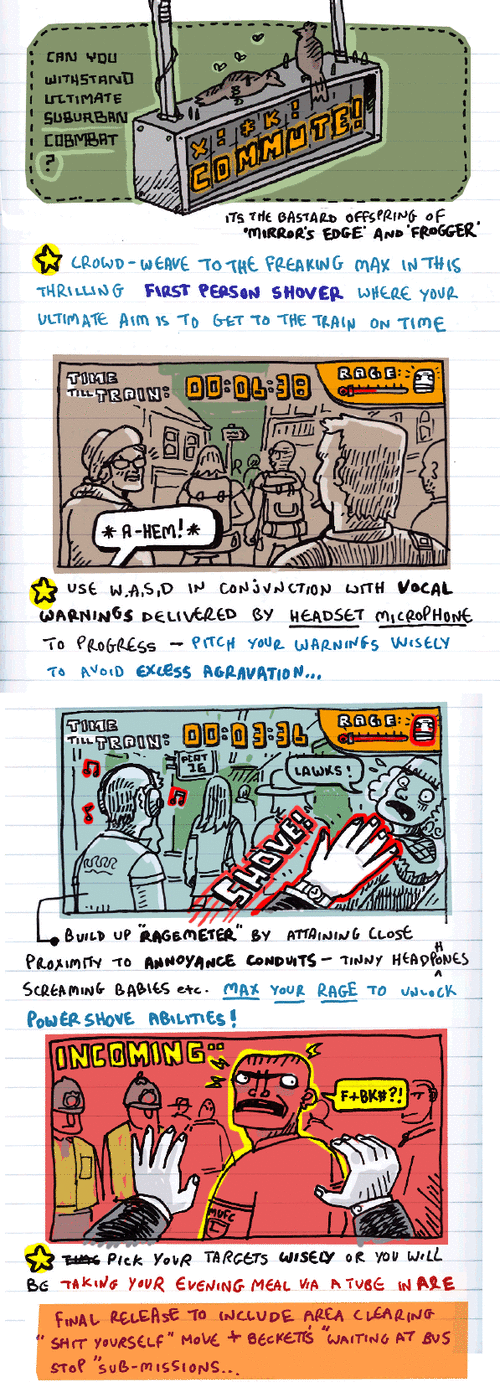 CAN YOU
WITHSTAND
ULTIMATE
SUBURBAN
COBMBAT
?
X!*K!
COMMUTE!
ITS THE BASTARD OFFSPRING OF
'MIRROR'S EDGE' AND 'FROGGER'
CROWD-WEAVE TO THE FREAKING MAX IN THIS
THRILLING FIRST PERSON SHOVER WHERE YOUR
ULTIMATE AIM IS TO GET TO THE TRAIN ON TIME
TIME
TILL TRAIN: 00:06:38
RAGE:
*A-HEM!*
USE W,A,S,D IN CONJUNCTION WITH VOCAL
WARNINGS DELIVERED BY HEADSET MICROPHONE
TO PROGRESS — PITCH YOUR WARNINGS WISELY
TO AVOID EXCESS AGRAVATION...
TIME
TILL TRAIN: 00:03:36
RAGE:
PLAT
16
LAWKS!
SHOVE!
BUILD UP "RAGEMETER" BY ATTAINING CLOSE
PROXIMITY TO ANNOYANCE CONDUITS — TINNY HEADPHONES
SCREAMING BABIES etc. MAX YOUR RAGE TO UNLOCK
POWER SHOVE ABILITIES!
INCOMING..
F+BK#?!
MUFC
PICK YOUR TARGETS WISELY OR YOU WILL
BE TAKING YOUR EVENING MEAL VIA A TUBE IN A&E
FINAL RELEASE TO INCLUDE AREA CLEARING
"SHIT YOURSELF" MOVE + BECKETT'S "WAITING AT BUS
STOP" SUB-MISSIONS...